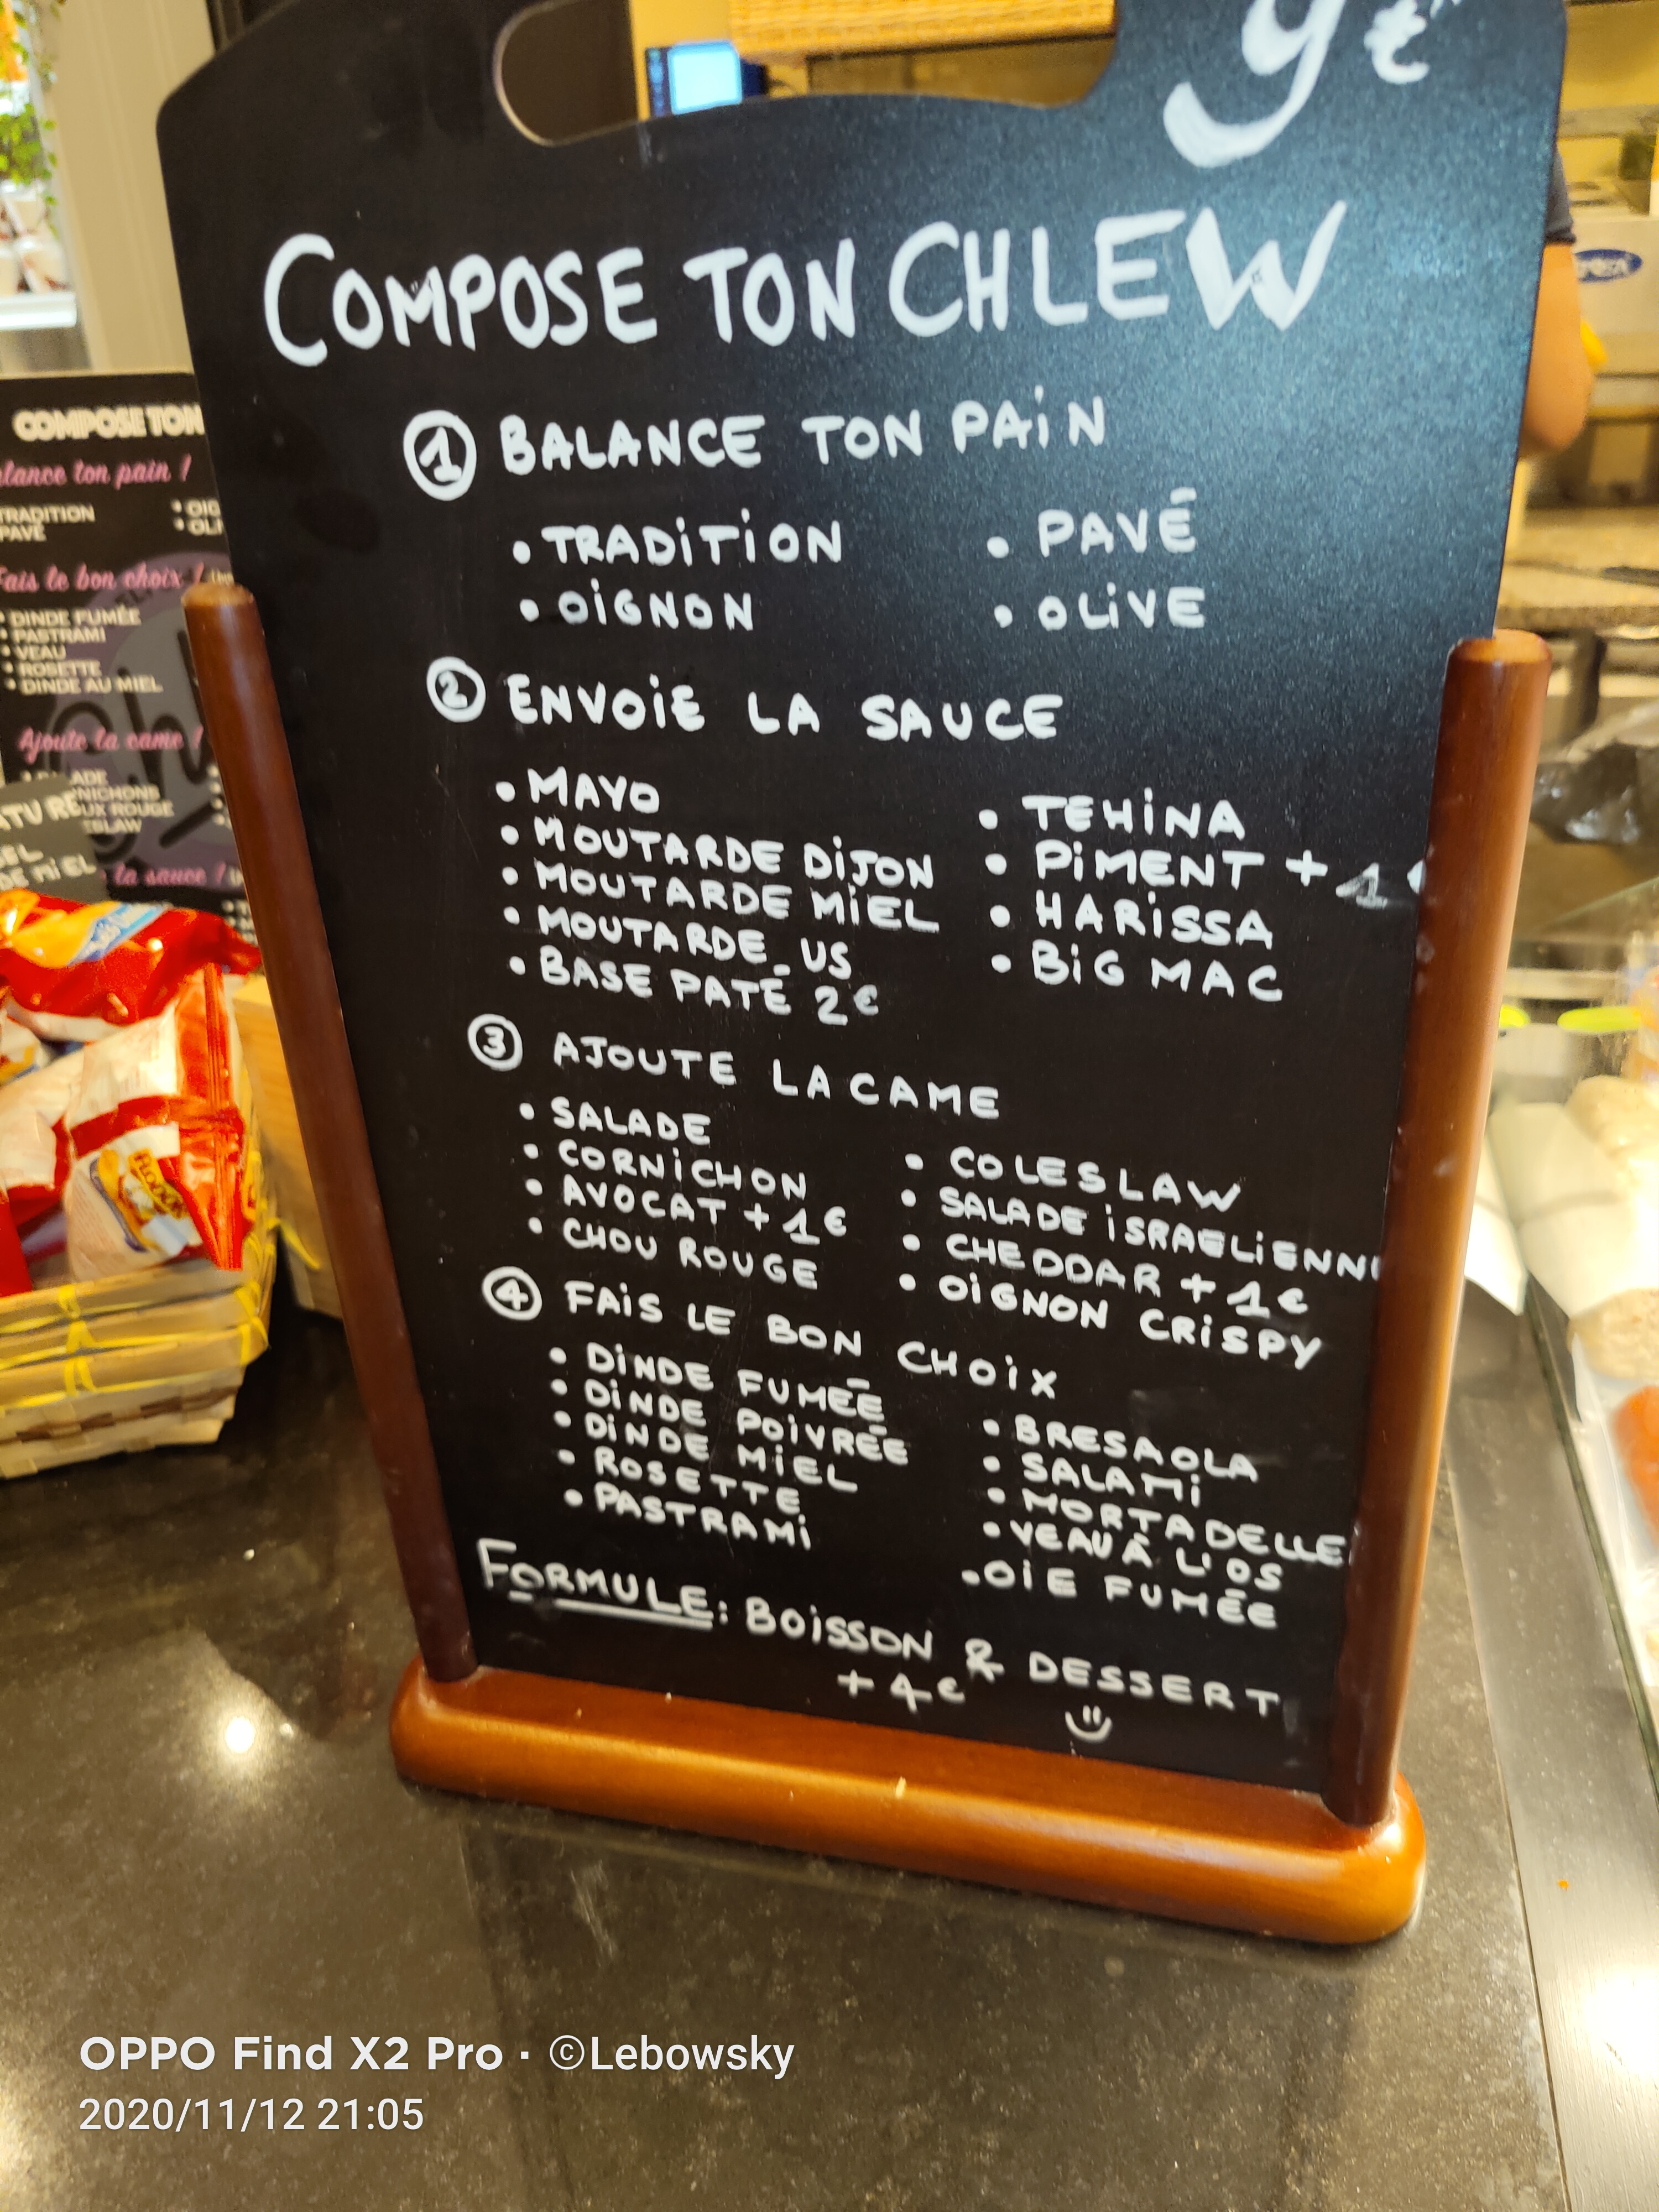 9€
COMPOSE TON CHLEW
1 BALANCE TON PAiN
• TRADiTiON • PAVÉ
• OiGNON • OLiVE
2 ENVOiE LA SAUCE
• MAYO
• MOUTARDE DiJON
• MOUTARDE MiEL
• MOUTARDE US
• BASE PATÉ 2€
• TEHiNA
• PiMENT + 1€
• HARiSSA
• BiG MAC
3 AJOUTE LA CAME
• SALADE
• CORNiCHON
• AVOCAT + 1€
• CHOU ROUGE
• COLESLAW
• SALADE iSRAELiENN
• CHEDDAR + 1€
• OiGNON CRiSPY
4 FAiS LE BON CHOiX
• DiNDE FUMÉE
• DiNDE POiVRÉE
• DiNDE MiEL
• ROSETTE
• PASTRAMi
• BRESAOLA
• SALAMi
• MORTADELLE
• VEAU À L'OS
• OiE FUMÉE
FORMULE: BOiSSON & DESSERT
+ 4€
COMPOSE TON
lance ton pain !
TRADITION
PAVE
• OIG
• OLI
Fais le bon choix !
• DINDE FUMÉE
• PASTRAMI
• VEAU
• ROSETTE
• DINDE AU MIEL
Ajoute la came !
ADE
NICHONS
UX ROUGE
ESLAW
la sauce !
OPPO Find X2 Pro · ©Lebowsky
2020/11/12 21:05